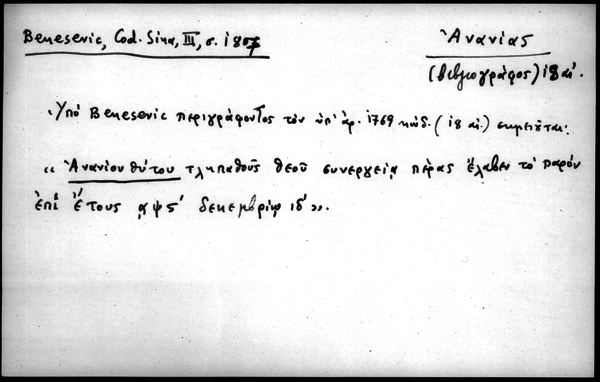 Benesevic, Cod. Sina, III, σ. 1807
Ἀνανίας
(βιβλιογράφος) 18 αἰ.
Ὑπὸ Benesevic περιγράφοντος τὸν ὑπ' ἀρ. 1769 κώδ. (18 αἰ.) σημειοῦται:
« Ἀνανίου θύτου τληπαθοῦς θεοῦ συνεργείᾳ πέρας ἔλαβεν τὸ παρὸν
ἐπὶ ἔτους ͵αψϛ' δεκεμβρίῳ ιδ' ».